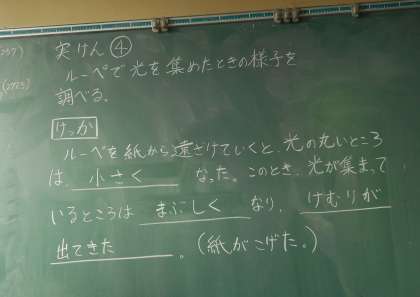 実けん④
ルーペで光を集めたときの様子を
調べる。
けっか
ルーペを紙から遠ざけていくと、光の丸いところ
は、小さく なった。このとき、光が集まって
いるところは まぶしく なり、けむりが
出てきた。(紙がこげた。)